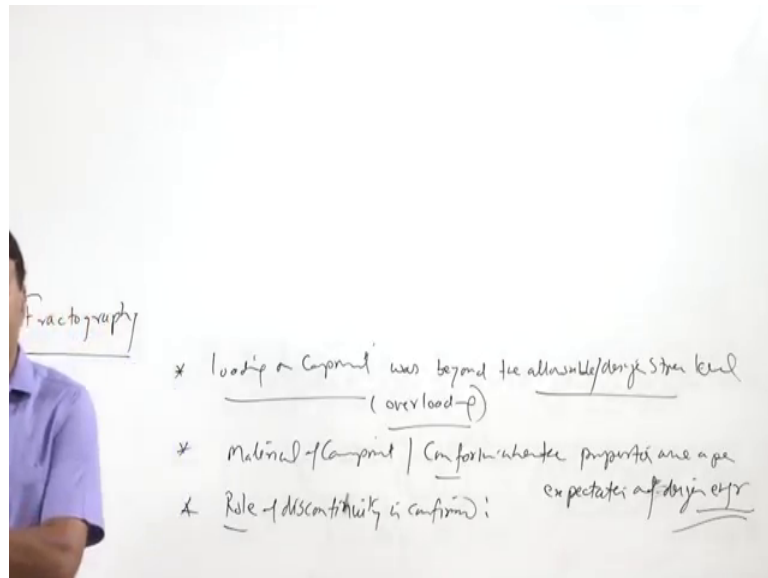 Fractography
* loading on Component was beyond the allowable/design stress level
(overload-p)
* Material of Component / Conform whether properties are as per
expectation of design engr
* Role of discontinuity is confirmed: